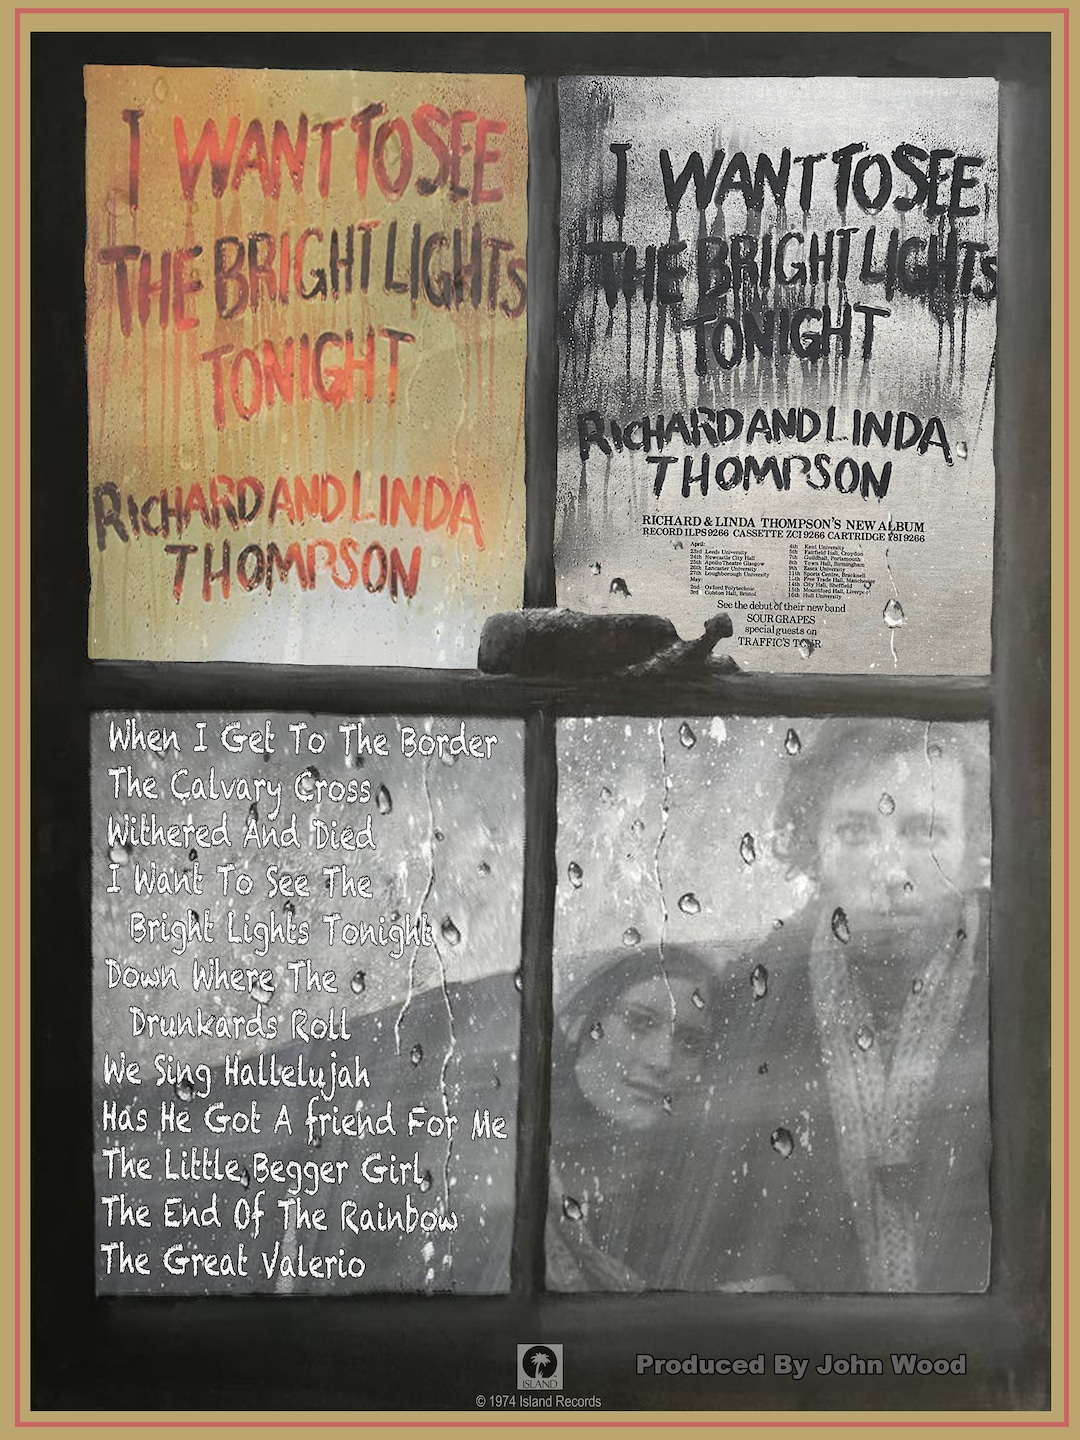 I WANT TO SEE
THE BRIGHT LIGHTS
TONIGHT
RICHARD AND LINDA
THOMPSON
I WANT TO SEE
THE BRIGHT LIGHTS
TONIGHT
RICHARD AND LINDA
THOMPSON
RICHARD & LINDA THOMPSON'S NEW ALBUM
RECORD ILPS 9266 CASSETTE ZCI 9266 CARTRIDGE Y8I 9266
April:
23rd Leeds University
24th Newcastle City Hall
25th Apollo Theatre Glasgow
26th Lancaster University
27th Loughborough University
May:
2nd Oxford Polytechnic
3rd Colston Hall, Bristol
4th Kent University
5th Fairfield Hall, Croydon
7th Guildhall, Portsmouth
8th Town Hall, Birmingham
9th Essex University
11th Sports Centre, Bracknell
Free Trade Hall, Manchester
14th City Hall, Sheffield
15th Mountford Hall, Liverpool
16th Hull University
See the debut of their new band
SOUR GRAPES
special guests on
TRAFFIC'S TOUR
When I Get To The Border
The Calvary Cross
Withered And Died
I Want To See The
Bright Lights Tonight
Down Where The
Drunkards Roll
We Sing Hallelujah
Has He Got A friend For Me
The Little Begger Girl
The End Of The Rainbow
The Great Valerio
ISLAND
Produced By John Wood
© 1974 Island Records